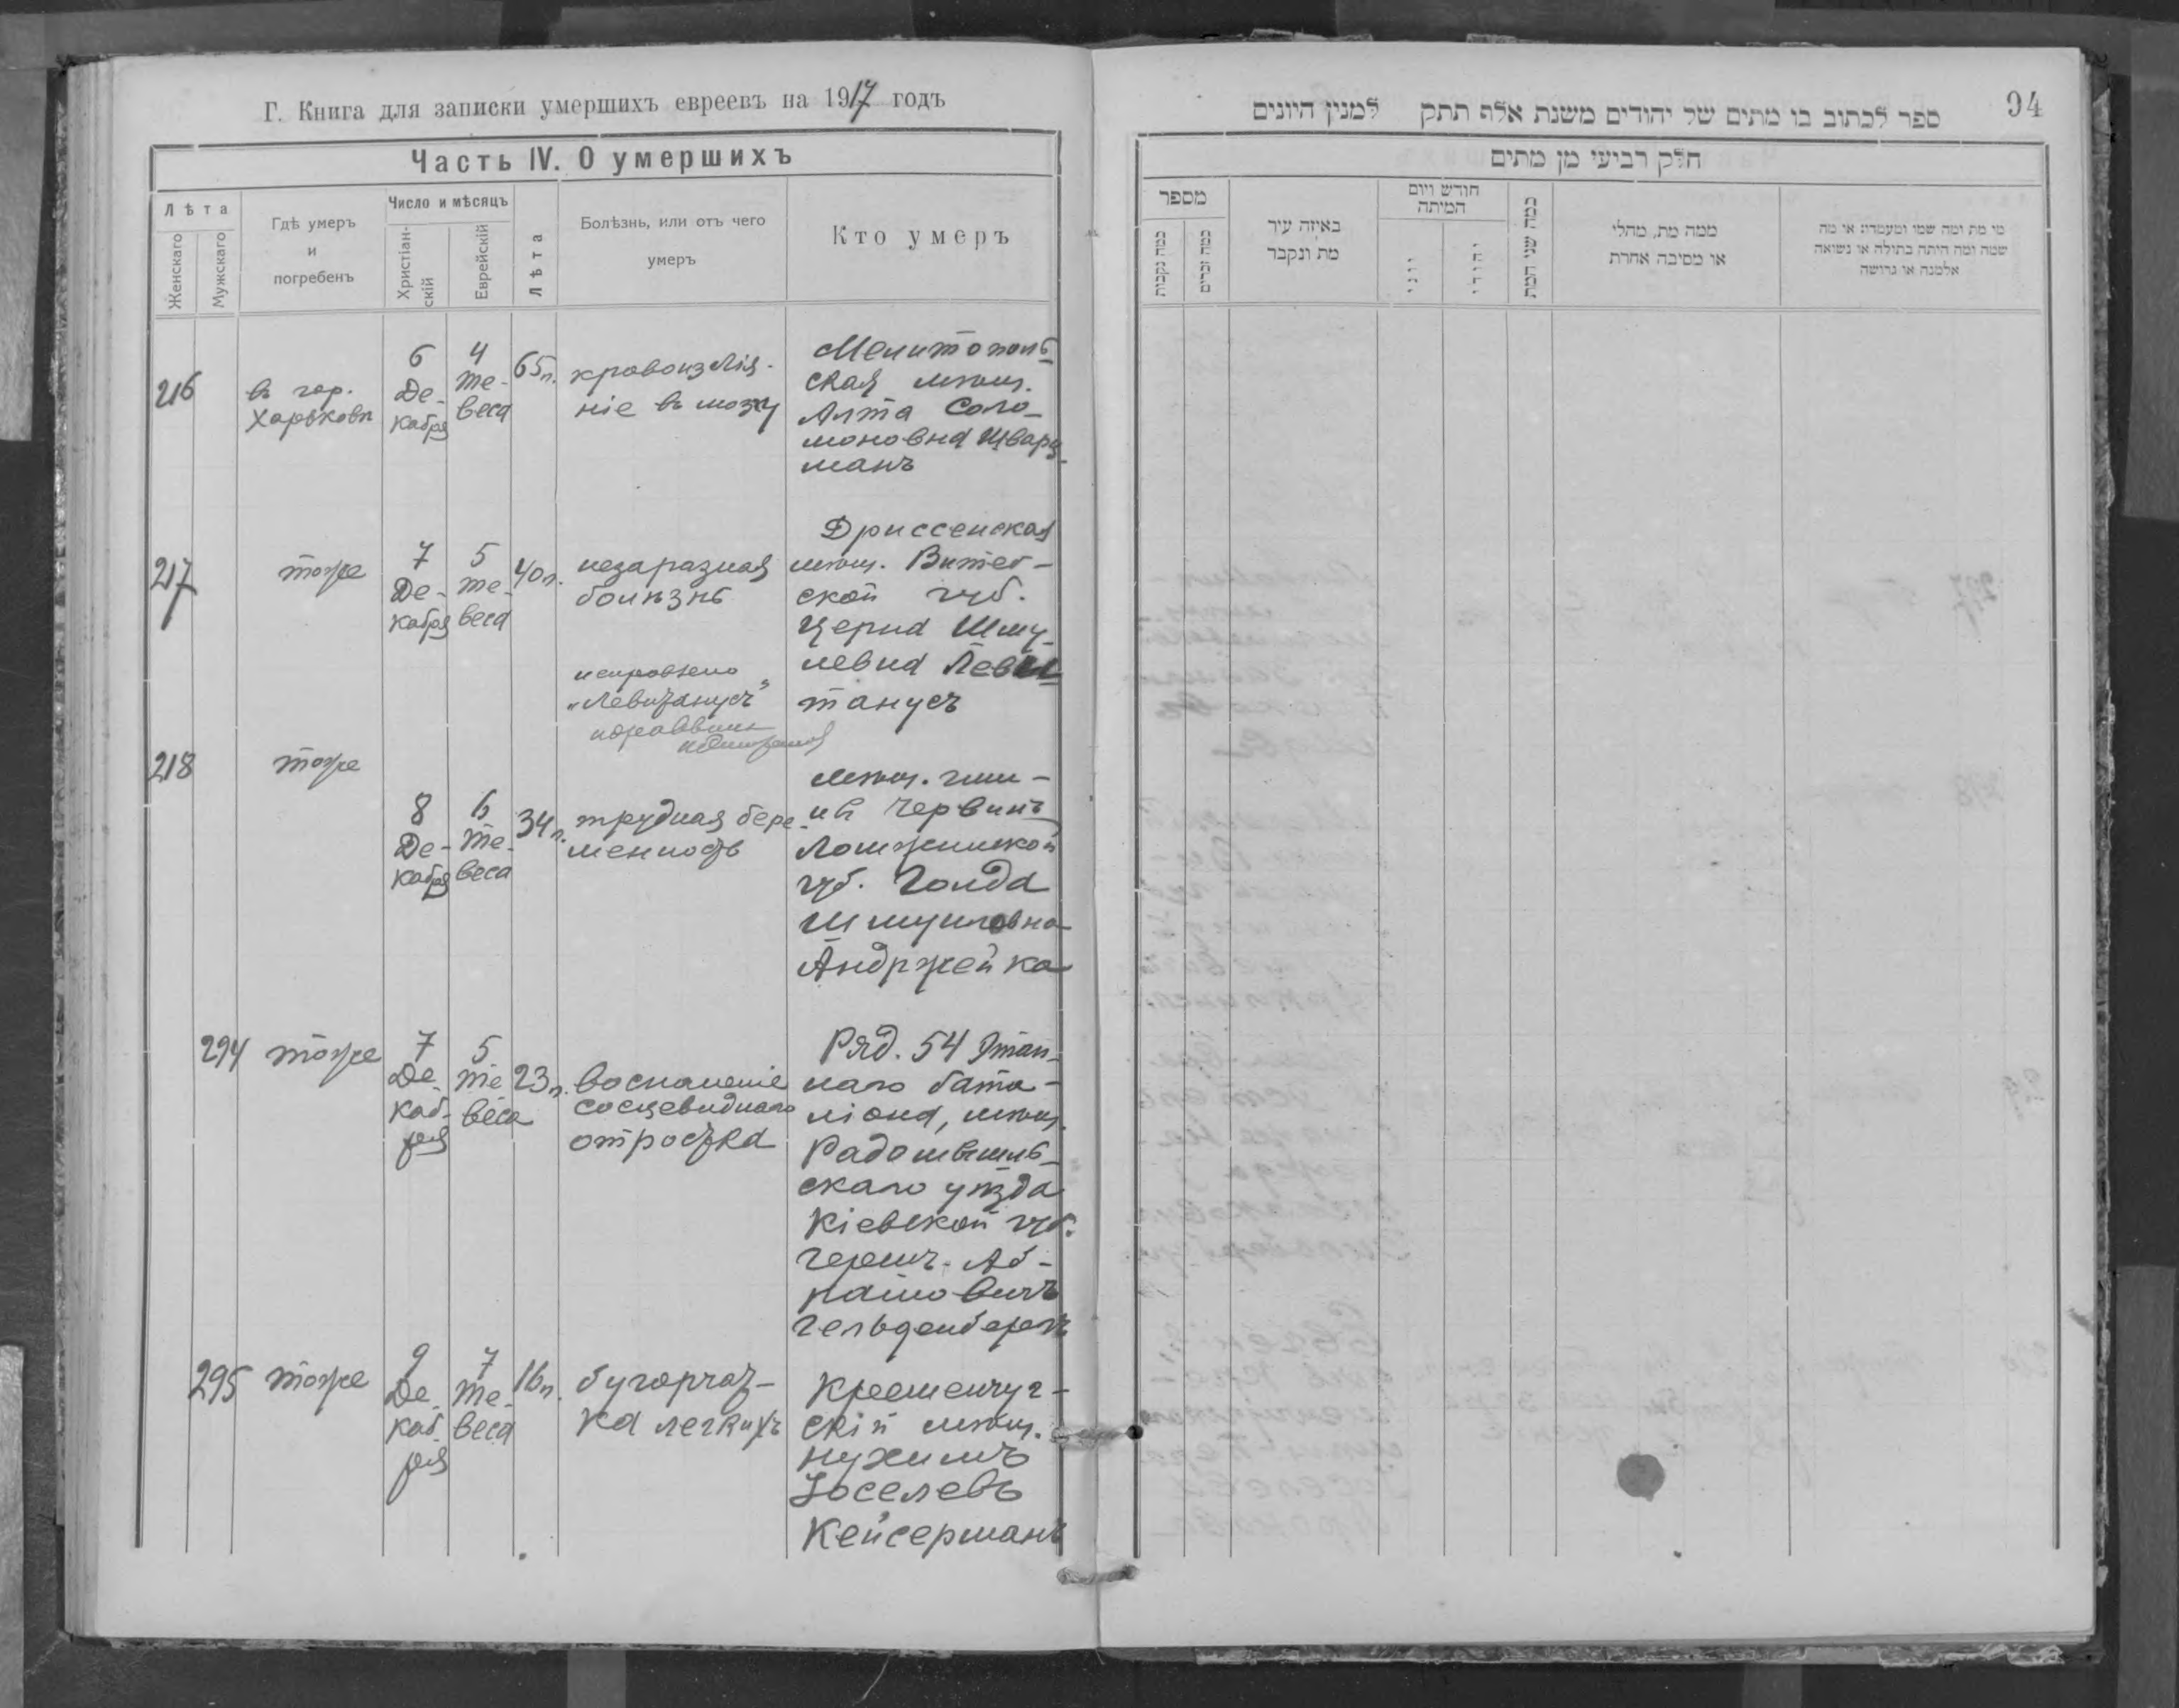 Г. Книга для записки умершихъ евреевъ на 1917 годъ
Часть IV. О умершихъ
Лѣта
Женскаго
Мужскаго
Гдѣ умеръ
и
погребенъ
Число и мѣсяцъ
Христіан-
скій
Еврейскій
Лѣта
Болѣзнь, или отъ чего
умеръ
Кто умеръ
216
въ гор.
Харьковѣ
6
Де-
кабря
4
Те-
веса
65 л.
кровоизлія-
ніе въ мозгу
Мелитополь
ская мѣщ.
Алта Соло-
моновна Шварц-
манъ
217
тоже
7
Де-
кабря
5
Те-
веса
40 л.
незаразная
болѣзнь
исправлено
„Левитанусъ"
Дриссенская
мѣщ. Витеб-
ской губ.
Церна Шму-
левна Леви
танусъ
218
тоже
8
Де-
кабря
6
Те-
веса
34 л.
трудная бере-
менность
мѣщ. гми-
ны Червинъ
Ломжинской
губ. Голда
Шмуиловна
Анджейка
294
тоже
7
Де-
каб-
ря
5
Те
веса
23 л.
воспаленіе
сосцевиднаго
отростка
Ряд. 54 Этап-
наго бата-
ліона, мѣщ.
Радомысль-
скаго уѣзда
Кіевской губ.
Гершъ-
295
тоже
9
Де-
каб-
ря
7
Те-
веса
16 л.
бугорчат-
ка легкихъ
Кременчуг-
скій мѣщ.
Нухимъ
Іоселевъ
Кейсерманъ
94
ספר לכתוב בו מתים של יהודים משנת אלף תתק למנין היונים
חלק רביעי מן מתים
מספר
כמה נקבות
כמה זכרים
באיזה עיר
מת ונקבר
חודש ויום
המיתה
יוני
יהודי
כמה שני המת
ממה מת, מחלי
או מסיבה אחרת
מי מת ומה שמו ומעמדו או מה
שמה ומה היתה בתולה או נשואה
אלמנה או גרושה